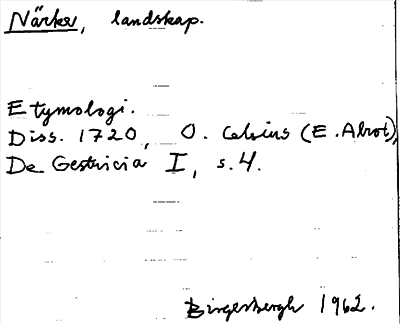 Närke, landskap.
Etymologi.
Diss. 1720, O. Celsius (E. Alrot),
De Gestricia I, s. 4.
Bingersbergh 1962.